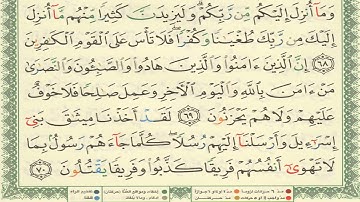 وَمَآ أُنزِلَ إِلَيْكُم مِّن رَّبِّكُمْ ۗ وَلَيَزِيدَنَّ كَثِيرًا مِّنْهُم مَّآ أُنزِلَ
إِلَيْكَ مِن رَّبِّكَ طُغْيَٰنًا وَكُفْرًا ۖ فَلَا تَأْسَ عَلَى ٱلْقَوْمِ ٱلْكَٰفِرِينَ
٦٨ إِنَّ ٱلَّذِينَ ءَامَنُوا۟ وَٱلَّذِينَ هَادُوا۟ وَٱلصَّٰبِـُٔونَ وَٱلنَّصَٰرَىٰ
مَنْ ءَامَنَ بِٱللَّهِ وَٱلْيَوْمِ ٱلْءَاخِرِ وَعَمِلَ صَٰلِحًا فَلَا خَوْفٌ
عَلَيْهِمْ وَلَا هُمْ يَحْزَنُونَ ٦٩ لَقَدْ أَخَذْنَا مِيثَٰقَ بَنِىٓ
إِسْرَٰٓءِيلَ وَأَرْسَلْنَآ إِلَيْهِمْ رُسُلًا ۖ كُلَّمَا جَآءَهُمْ رَسُولٌۢ بِمَا
لَا تَهْوَىٰٓ أَنفُسُهُمْ فَرِيقًا كَذَّبُوا۟ وَفَرِيقًا يَقْتُلُونَ ٧٠